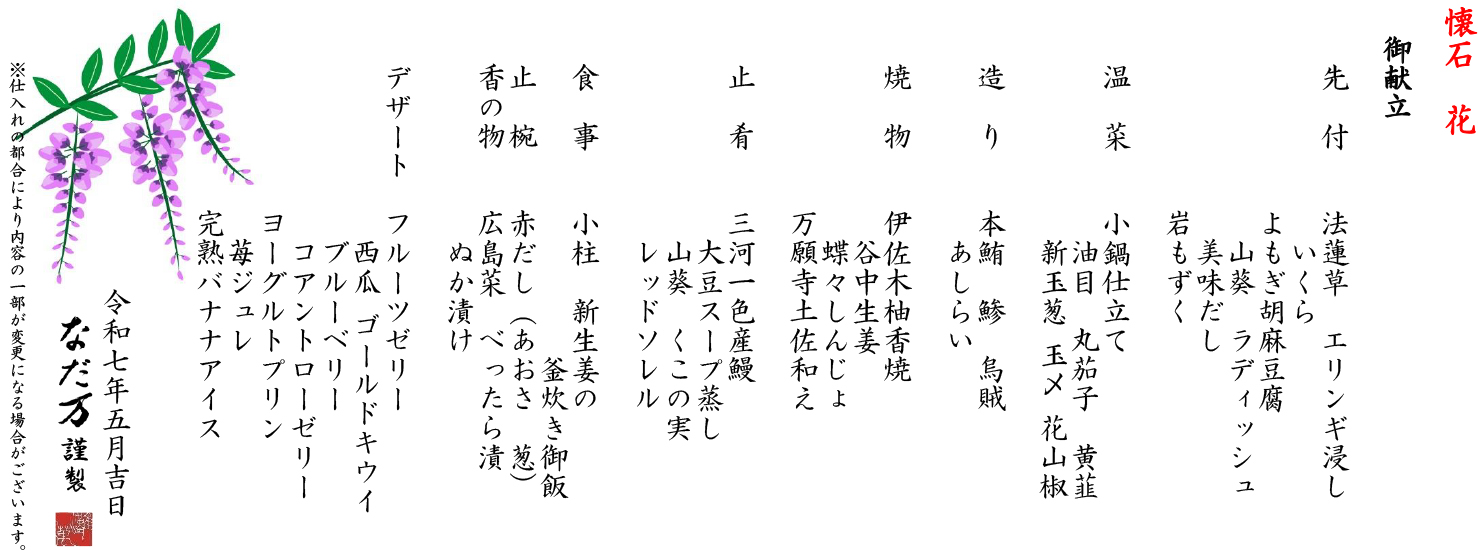 懐石 花
御献立
先付 法蓮草 エリンギ浸し
いくら
よもぎ胡麻豆腐
山葵 ラディッシュ
美味だし
岩もずく
温菜 小鍋仕立て
油目 丸茄子 黄韮
新玉葱 玉〆 花山椒
造り 本鮪 鯵 烏賊
あしらい
焼物 伊佐木柚香焼
谷中生姜
蝶々しんじょ
万願寺土佐和え
止肴 三河一色産鰻
大豆スープ蒸し
山葵 くこの実
レッドソレル
食事 小柱 新生姜の
釜炊き御飯
止椀 赤だし（あおさ 葱）
香の物 広島菜 べったら漬
ぬか漬け
デザート フルーツゼリー
西瓜 ゴールドキウイ
ブルーベリー
コアントローゼリー
ヨーグルトプリン
苺ジュレ
完熟バナナアイス
令和七年五月吉日
なだ万 謹製
※仕入れの都合により内容の一部が変更になる場合がございます。